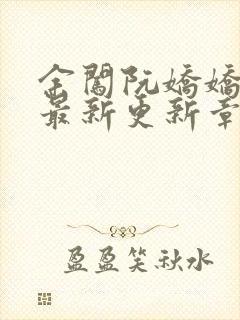 金阖阮娇娇
最新更新章
盈盈笑秋水